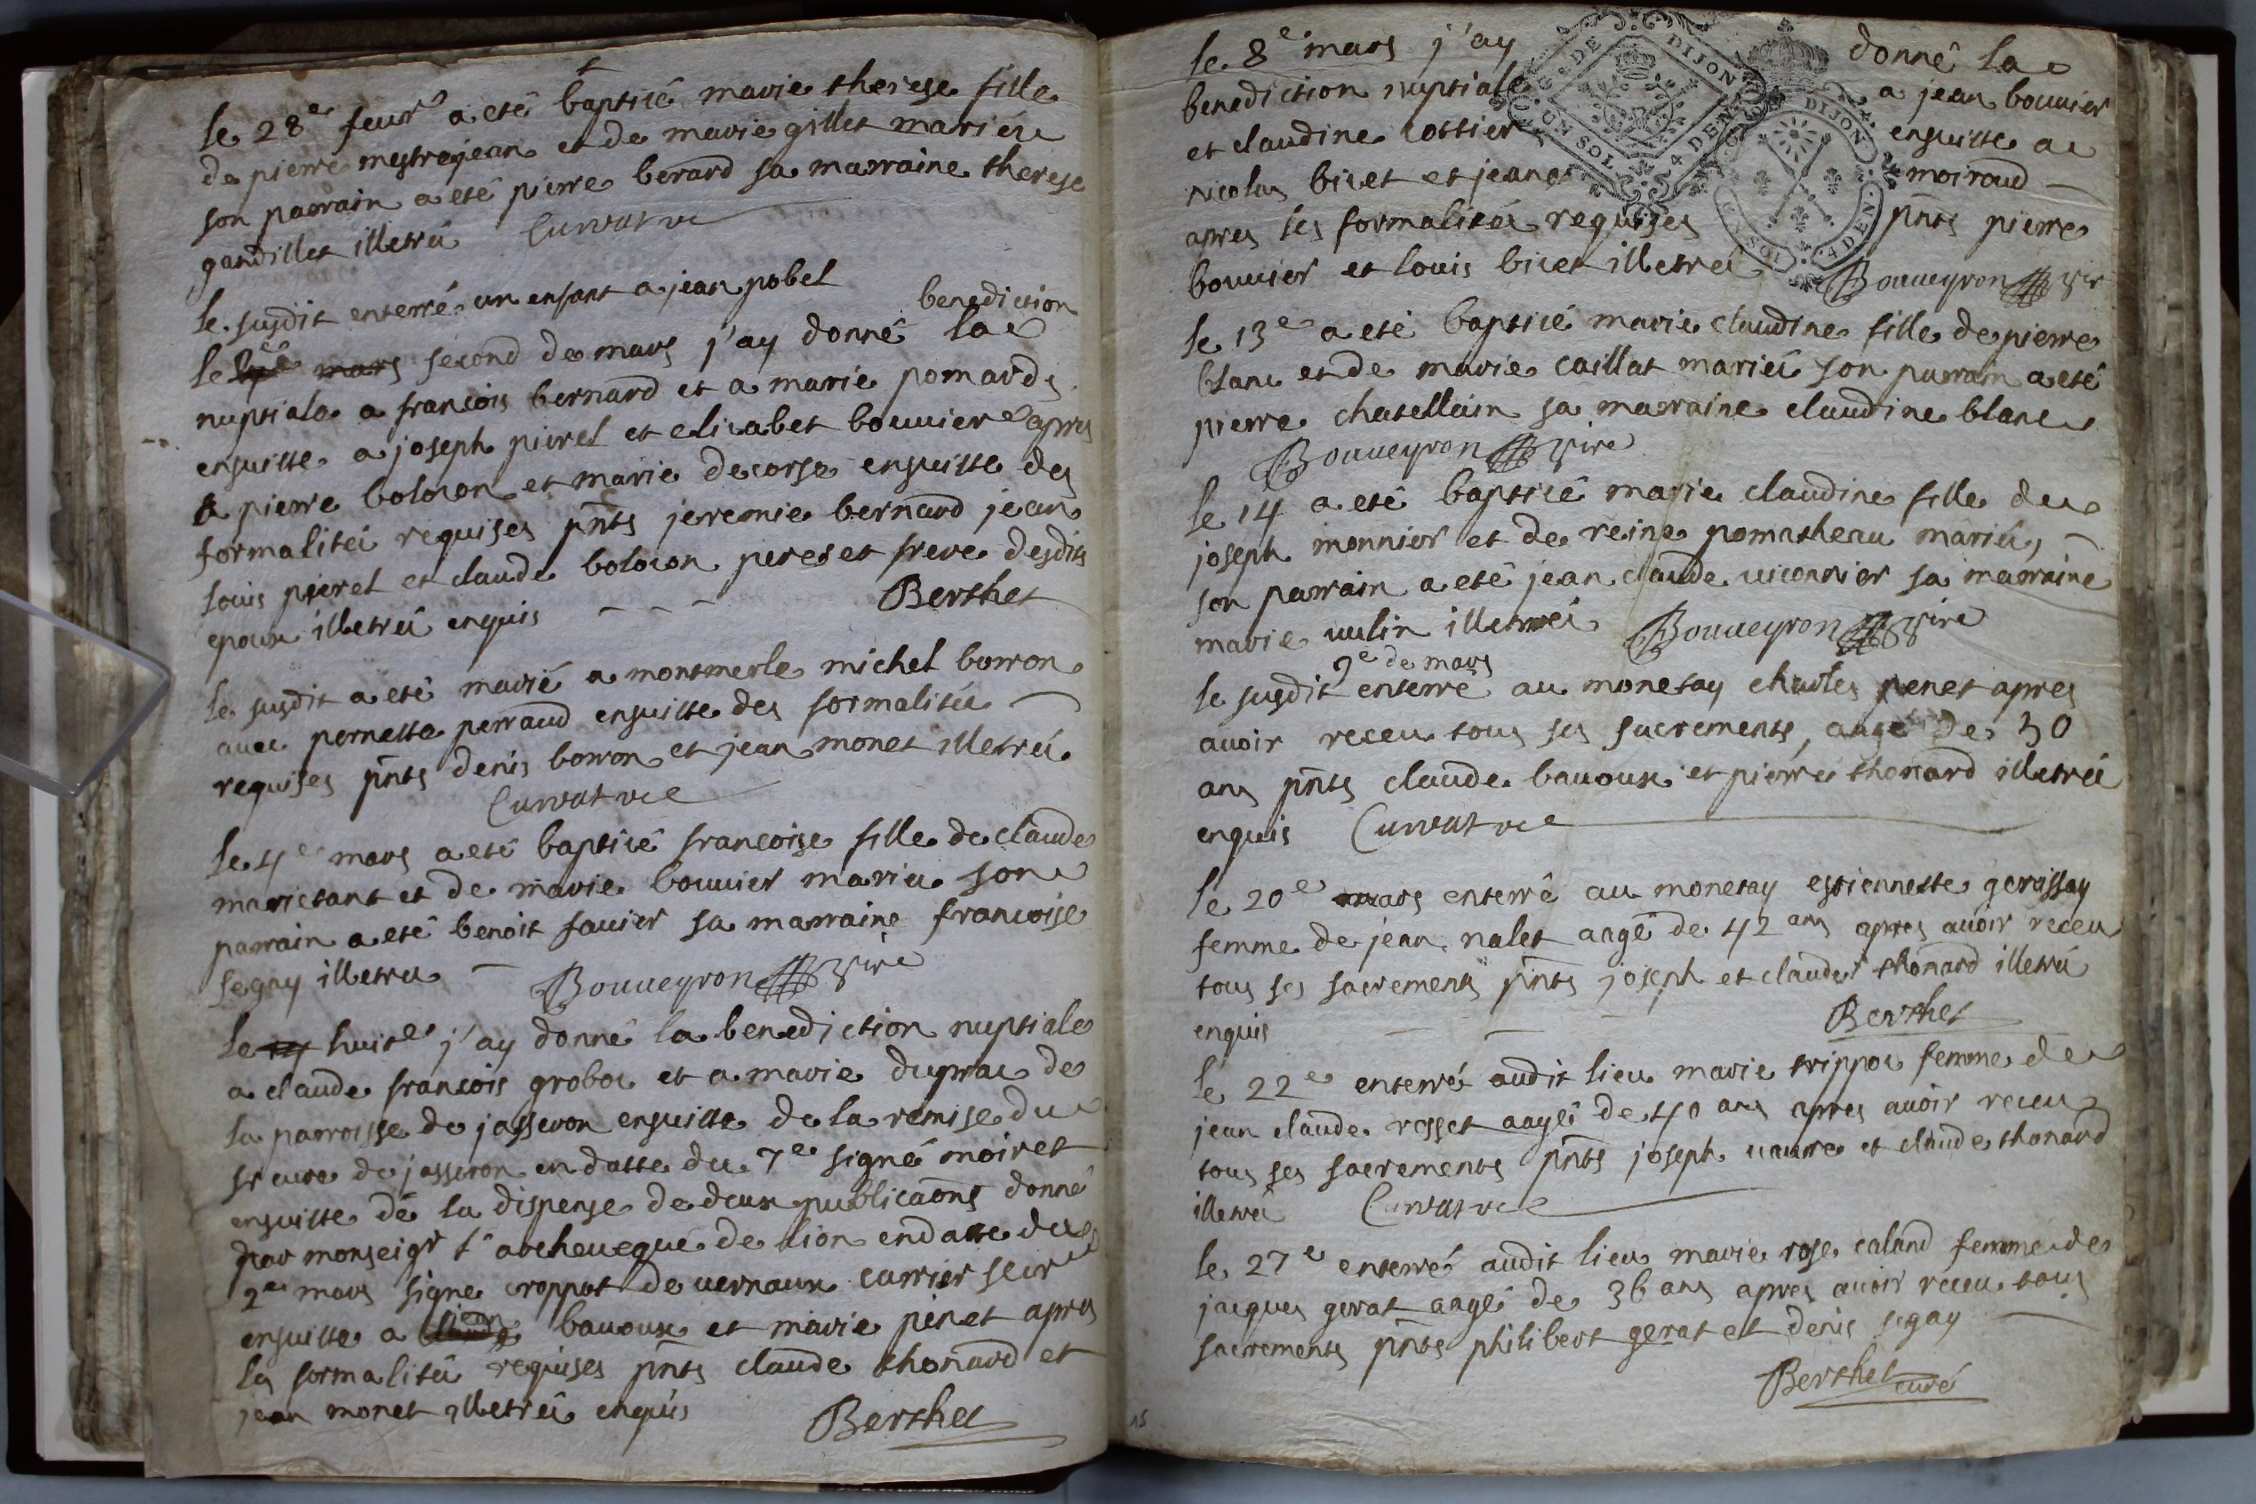 le 28e feur a eté baptisé marie therese fille
de pierre mestrejean et de marie gillet mariés
son parrain a eté pierre berard sa marraine therese
gandillet illetrés Curvat vic
le susdit enterré un enfant a jean pobel
benediction
le mars second de mars j'ay donné la
nuptiale a francois bernard et a marie pomard
ensuitte a joseph pierrel et elisabet bouvier apres
a pierre bolocon et marie decorse ensuitte des
formalités requises pnts jeremie bernard jean
louis pierel et claude bolocon peres et frere desdits
epoux illetrés enquis Berthet
le susdit a eté marié a montmerle michel borron
avec pernette perraud ensuitte des formalités
requises pnts denis borron et jean monet illetrés
Curvat vic
le 4e mars a eté baptisé francoise fille de claude
marietant et de marie bouvier mariés son
parrain a eté benoit favier sa marraine francoise
segay illetrés Bouveyron vire
le huite j'ay donné la benediction nuptiale
a claude francois grobos et a marie duprac de
la parroisse de jasseron ensuitte de la remise du
sr curé de jasseron en datte du 7e signé moiret
ensuitte de la dispense de deux publicaons donné
par monseigr l'archeueque de lion en datte du
2e mars signe croppet de vernaux carrier secre
ensuitte a jean bavoux et marie penet apres
les formalités requises pnts claude thonard et
jean monet illetrés enquis Berthet
le 8e mars j'ay donné la
benediction nuptiale a jean bouvier
et claudine cottier ensuitte a
nicolas bicet et jeane moiraud
apres les formalités requises pnts pierre
bouvier et louis bicet illetrés Bouveyron vir
G. DE DIJON
UN SOL 4 DEN
DIJON
UN SOL 4 DEN
le 13e a eté baptisé marie claudine fille de pierre
blanc et de marie caillat mariés son parrain a eté
pierre chatellain sa marraine claudine blanc
Bouveyron vire
le 14 a eté baptisé marie claudine fille de
joseph monnier et de reine pomatheau mariés,
son parrain a eté jean claude viconnier sa marraine
marie vulin illetrés Bouveyron vire
9e de mars
le susdit enterré au monetay charles penet apres
avoir receu tous ses sacrements, aagé de 50
ans pnts claude bavoux et pierre thonard illetrés
enquis Curvat vic
le 20e mars enterré au monetay estiennette gerissay
femme de jean nalet aagé de 42 ans apres avoir receu
tous ses sacrements pnts joseph et claude thonard illetrés
enquis Berthet
le 22e enterré audit lieu marie trippoz femme de
jean claude rosset aagé de 40 ans apres avoir receu
tous ses sacrements pnts joseph vavre et claude thonard
illetrés Curvat vic
le 27e enterré audit lieu marie rose caland femme de
jacques gerat aagé de 36 ans apres avoir receu tous
sacrements pnts philibert gerat et denis segay
Berthet curé
15